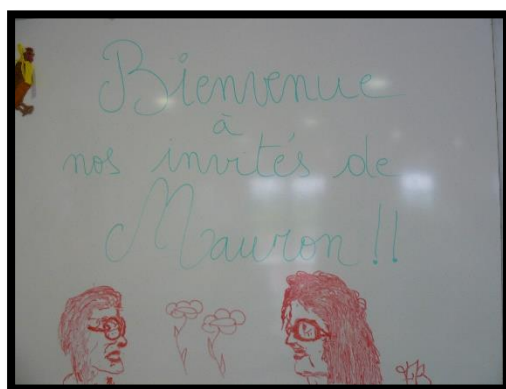 Bienvenue
à
nos invités de
Mauron !!